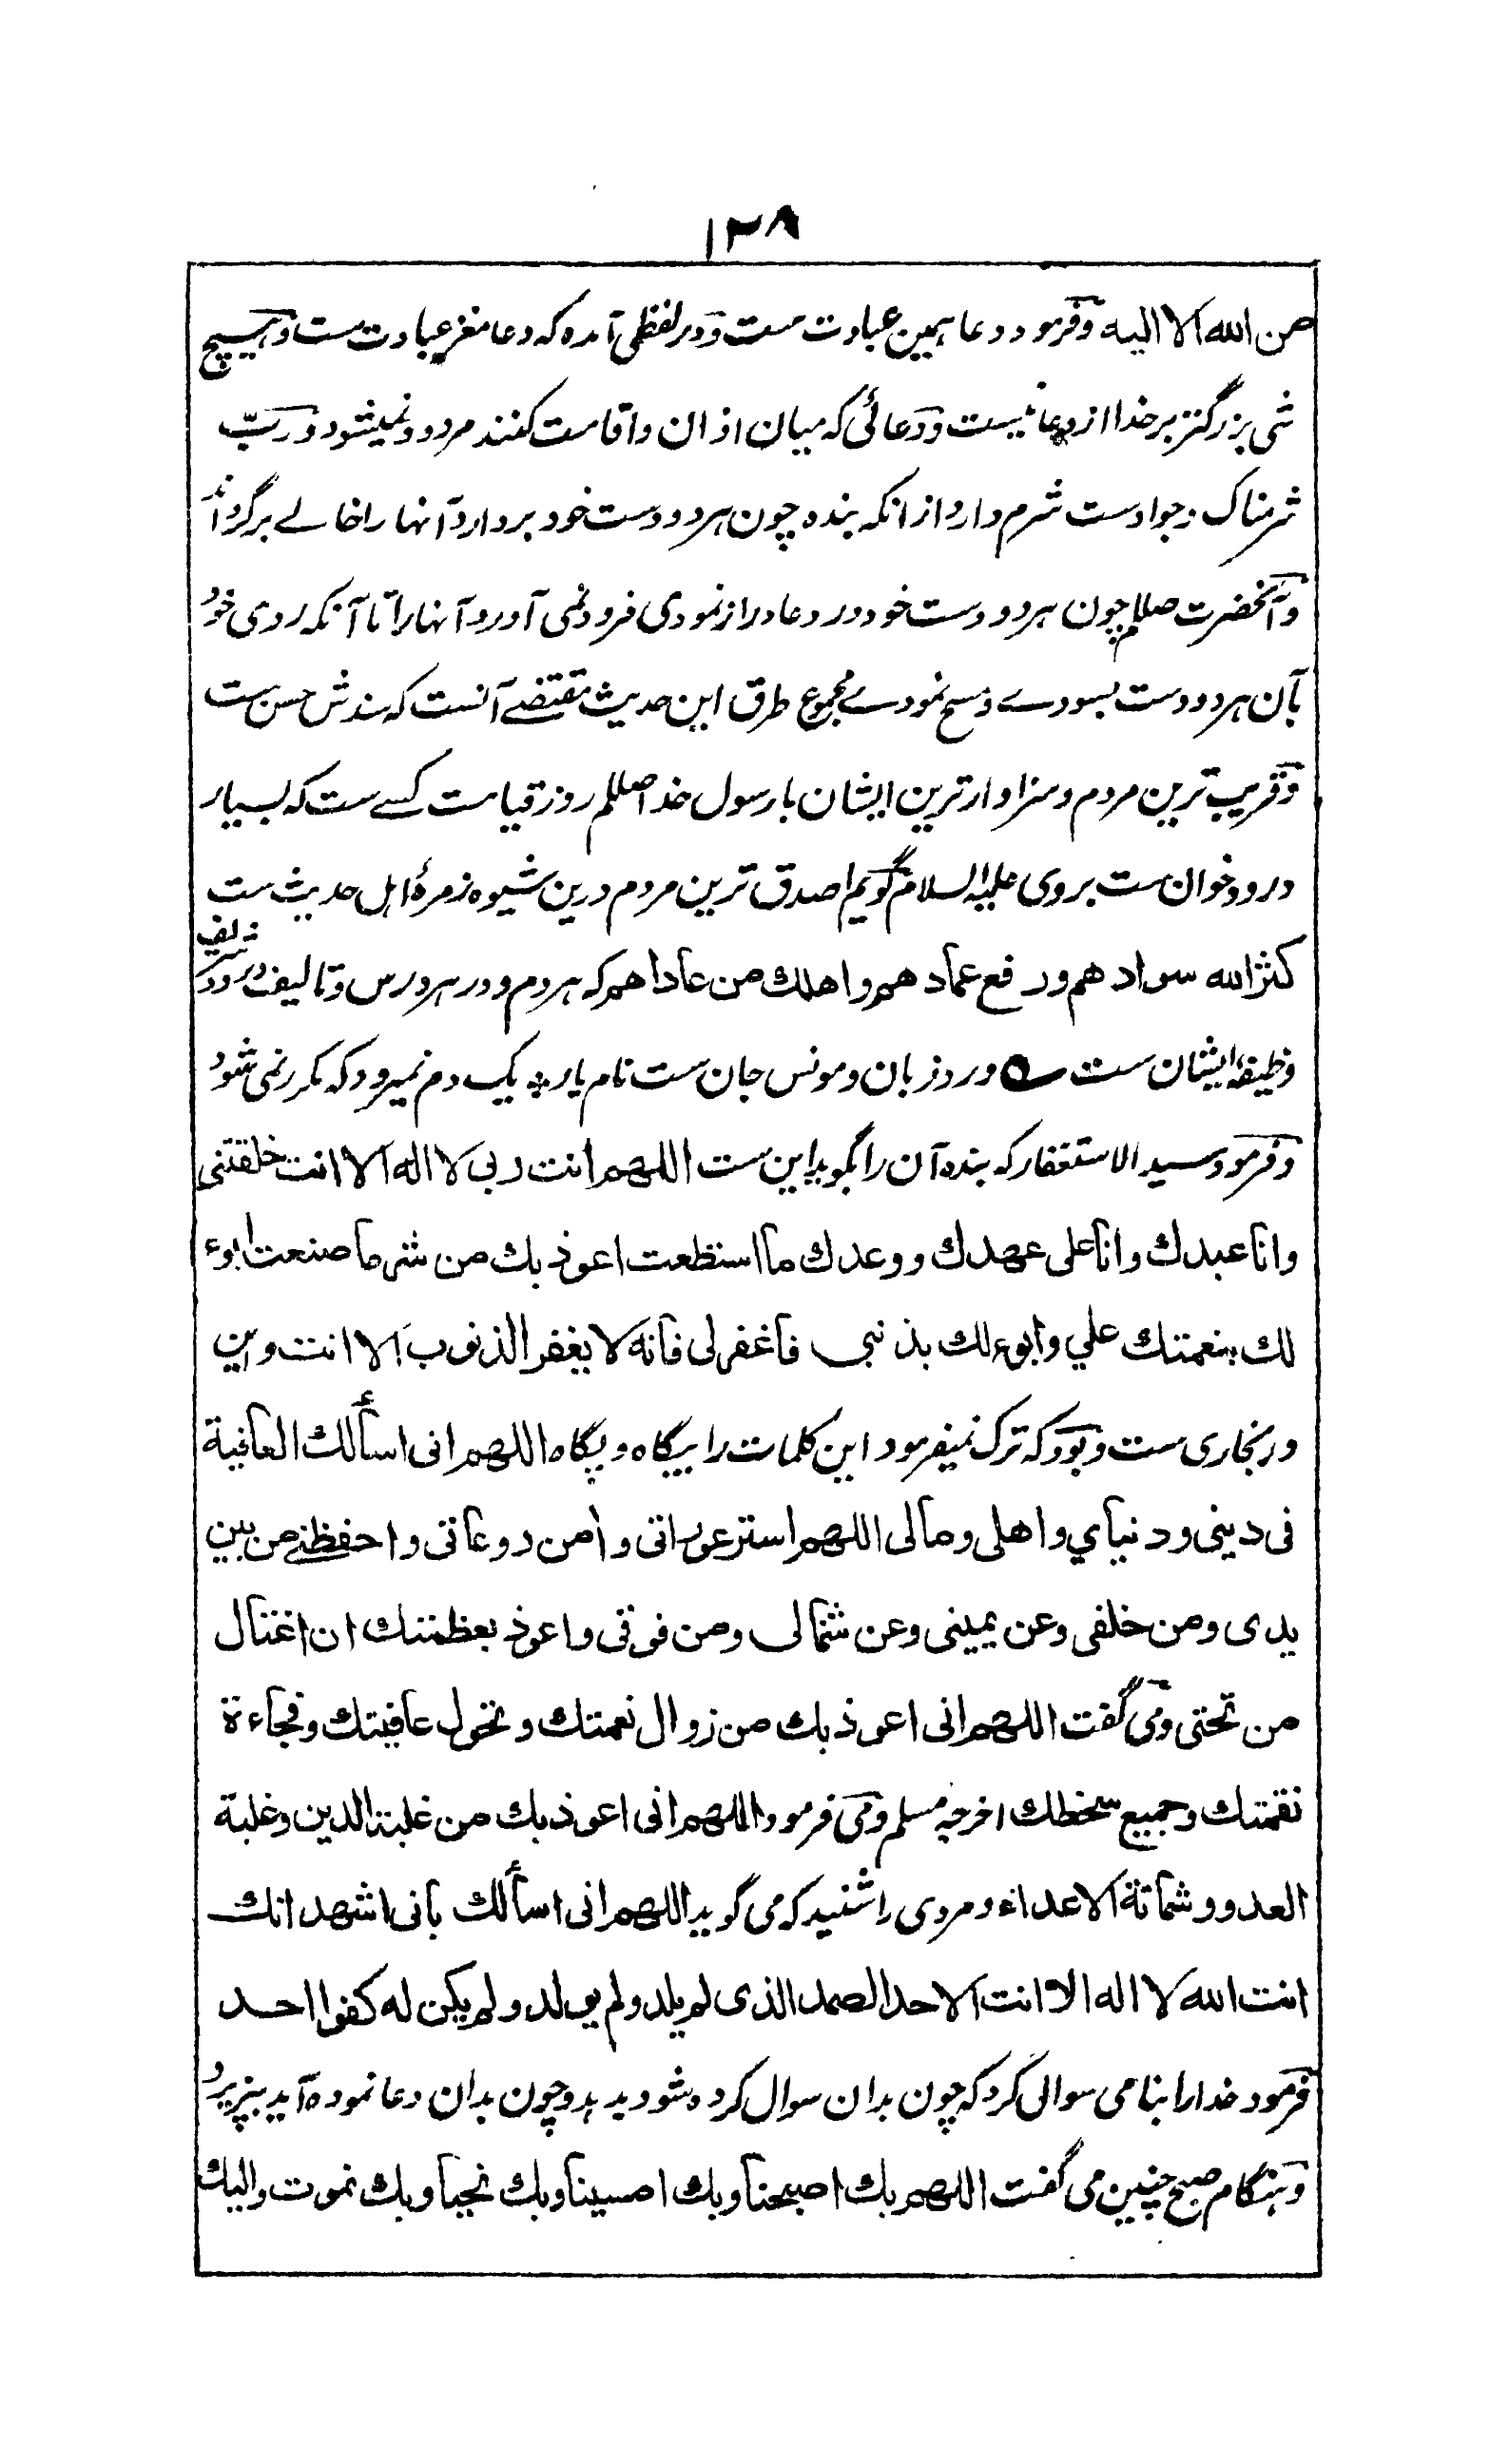 ۱۲۸
من الله الا الیه وفرمود دعا ہمین عبادت ست ودر لفظی آمده که دعا مغز عبادت ست وہیچ
شی بزرگتر بر خدا از دعا نیست ودعائی که میان اذان واقامت کنند مردود نمیشود ورب
شرمناک وجواد ست شرم دارد از انکه بنده چون ہر دو دست خود بردارد آنہا را خالے برگرداند
وآنحضرت صللم چون ہر دو دست خود در دعا دراز نمودی فرود نمی آورد آنہا را تا آنکه روی خود
بآن ہر دو دست بسودے ومسح نمودے مجموع طرق این حدیث مقتضے آنست که سندش حسن ست
وقریب ترین مردم وسزاوار ترین ایشان با رسول خدا صللم روز قیامت کسے ست که بسیار
درود خوان ست بروی علیه السلام گویم اصدق ترین مردم درین شیوه زمرۂ اہل حدیث ست
کثر الله سوادهم ورفع عمادهم واهلك من عاداهم که ہر دم ودر ہر درس وتالیف درود
وظیفۂ ایشان ست ے ورد زبان ومونس جان ست نام یار ٭ یک دم نمیرود که مکرر نمی شود
وفرمود سید الاستغفار که بنده آن را بگوید این ست اللهم انت ربی لا اله الا انت خلقتنی
وانا عبدك وانا علی عهدك ووعدك ما استطعت اعوذ بك من شر ما صنعت ابوء
لك بنعمتك علي وابوء لك بذنبی فاغفر لی فانه لا یغفر الذنوب الا انت واین
در بخاری ست وبود که ترک نمیفرمود این کلمات را بیگاه وپگاه اللهم انی اسألك العافیة
فی دینی ودنیاي واهلی ومالی اللهم استر عوراتی وامن روعاتی واحفظنے من بین
یدی ومن خلفی وعن یمینی وعن شمالی ومن فوقی واعوذ بعظمتك ان اغتال
من تحتی ومی گفت اللهم انی اعوذ بك من زوال نعمتك وتحول عافیتك وفجاءة
نقمتك وجمیع سخطك اخرجه مسلم ومی فرمود اللهم انی اعوذ بك من غلبة الدین وغلبة
العدو وشماتة الاعداء ومردی را شنید که می گوید اللهم انی اسألك بانی اشهد انك
انت الله لا اله الا انت الاحد الصمد الذی لم یلد ولم یولد ولم یکن له کفوا احد
فرمود خدا را بنامی سوالی کرد که چون بدان سوال کرده شود بدہد وچون بدان دعا نموده آید بپزیرد
وہنگام صبح چنین می گفت اللهم بك اصبحنا وبك امسینا وبك نحیا وبك نموت والیك